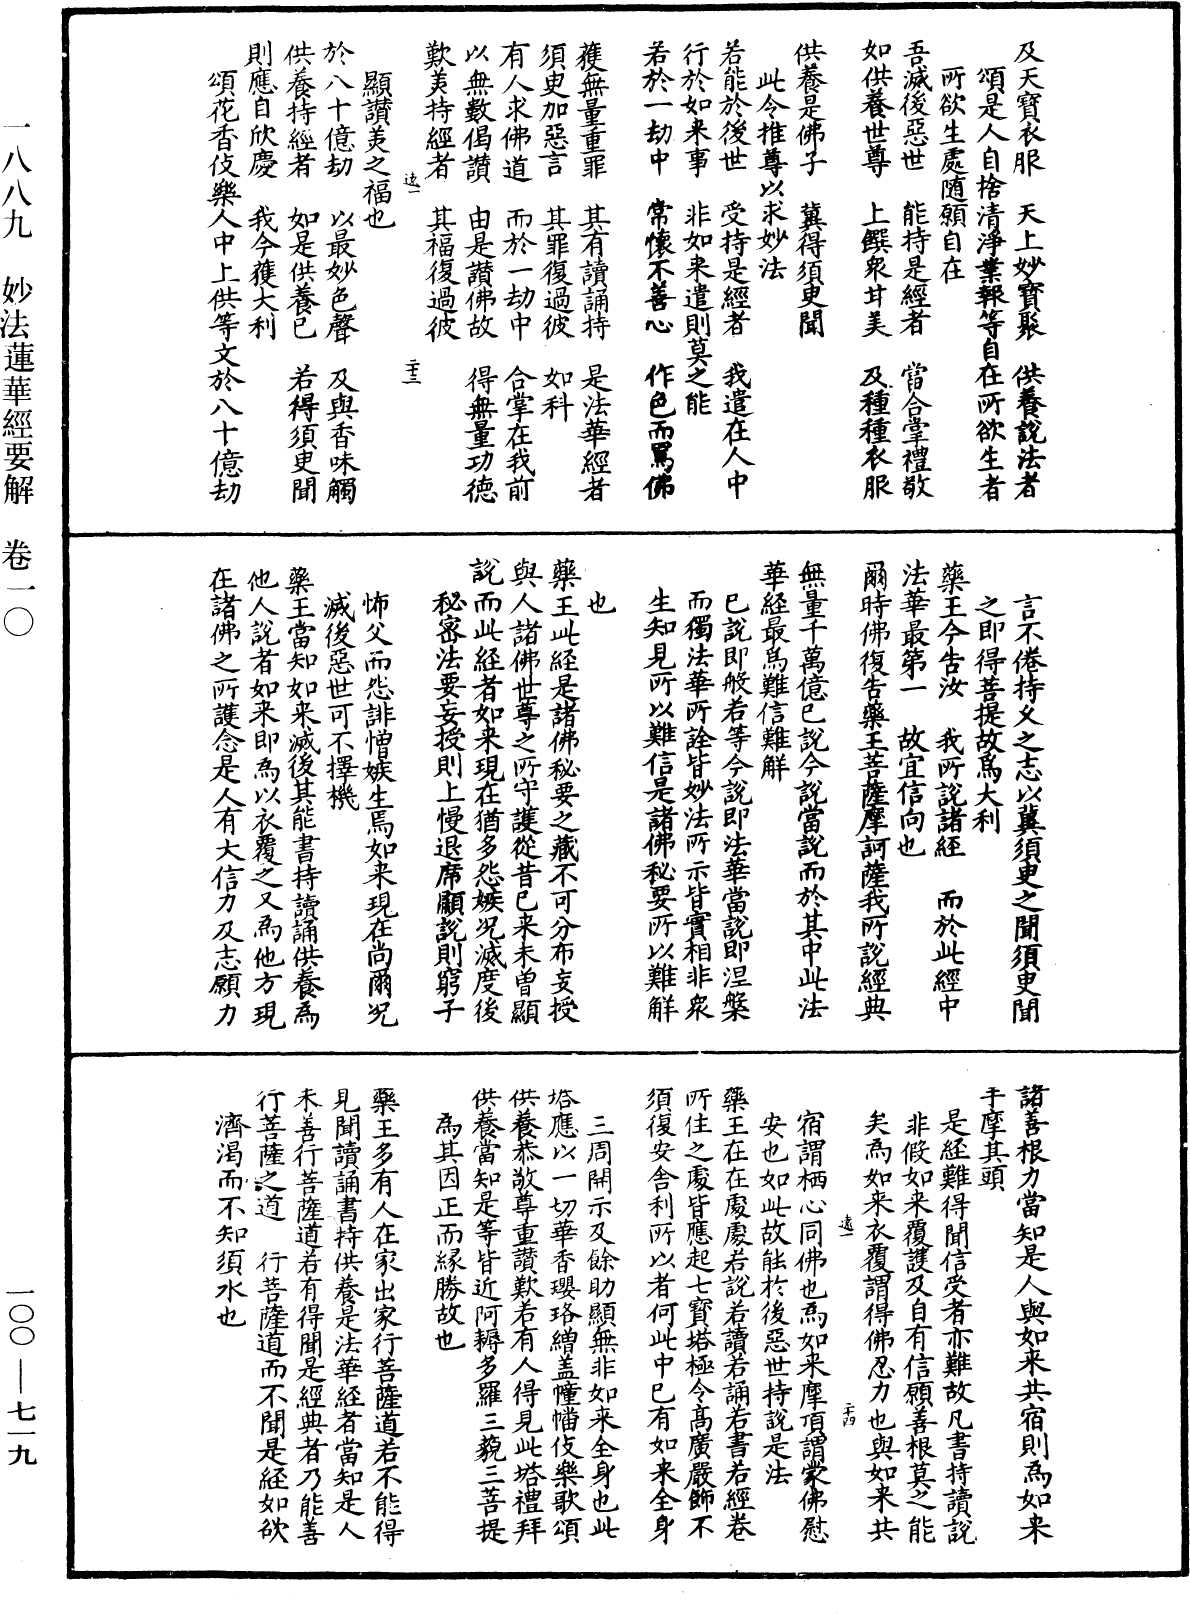 及天寶衣服　天上妙寶聚　供養說法者
頌是人自捨清淨業報等自在所欲生者
所欲生處隨願自在
吾滅後惡世　能持是經者　當合掌禮敬
如供養世尊　上饌衆甘美　及種種衣服
供養是佛子　冀得須臾聞
此令推尊以求妙法
若能於後世　受持是經者　我遣在人中
行於如来事　非如来遣則莫之能
若於一劫中　常懷不善心　作色而罵佛
獲無量重罪　其有讀誦持　是法華經者
須臾加惡言　其罪復過彼　如科
有人求佛道　而於一劫中　合掌在我前
以無數偈讃　由是讃佛故　得無量功德
歎美持經者　其福復過彼
遠一　二十三
顯讃美之福也
於八十億劫　以最妙色聲　及與香味觸
供養持經者　如是供養已　若得須臾聞
則應自欣慶　我今獲大利
頌花香伎樂人中上供等文於八十億劫
言不倦持乆之志以冀須臾之聞須臾聞
之即得菩提故爲大利
藥王今告汝　我所說諸經　而於此經中
法華最第一　故宜信向也
爾時佛復告藥王菩薩摩訶薩我所說經典
無量千萬億已說今說當說而於其中此法
華經最爲難信難解
已說即般若等今說即法華當說即涅槃
而獨法華所詮皆妙法所示皆實相非衆
生知見所以難信是諸佛秘要所以難解
也
藥王此經是諸佛秘要之藏不可分布妄授
與人諸佛世尊之所守護從昔已来未曽顯
說而此経者如来現在猶多怨嫉況滅度後
秘密法要妄授則上慢退席顯說則窮子
怖父而怨誹憎嫉生焉如来現在尚爾況
滅後惡世可不擇機
藥王當知如来滅後其能書持讀誦供養爲
他人說者如来即爲以衣覆之又爲他方現
在諸佛之所護念是人有大信力及志願力
諸善根力當知是人與如来共宿則爲如来
手摩其頭
是經難得聞信受者亦難故凡書持讀說
非假如来覆護及自有信願善根莫之能
矣爲如来衣覆謂得佛忍力也與如来共
遠一　二十四
宿謂栖心同佛也爲如来摩頂謂蒙佛慰
安也如此故能於後惡世持說是法
藥王在在處處若說若讀若誦若書若經卷
所住之處皆應起七寶塔極令髙廣嚴飾不
須復安舎利所以者何此中已有如来全身
三周開示及餘助顯無非如来全身也此
塔應以一切華香瓔珞繒盖幢幡伎樂歌頌
供養恭敬尊重讃歎若有人得見此塔禮拜
供養當知是等皆近阿耨多羅三藐三菩提
爲其因正而縁勝故也
藥王多有人在家出家行菩薩道若不能得
見聞讀誦書持供養是法華経者當知是人
未善行菩薩道若有得聞是經典者乃能善
行菩薩之道　行菩薩道而不聞是経如欲
濟渴而不知須水也
一八八九　妙法蓮華經要解　卷一〇
一〇〇—七一九